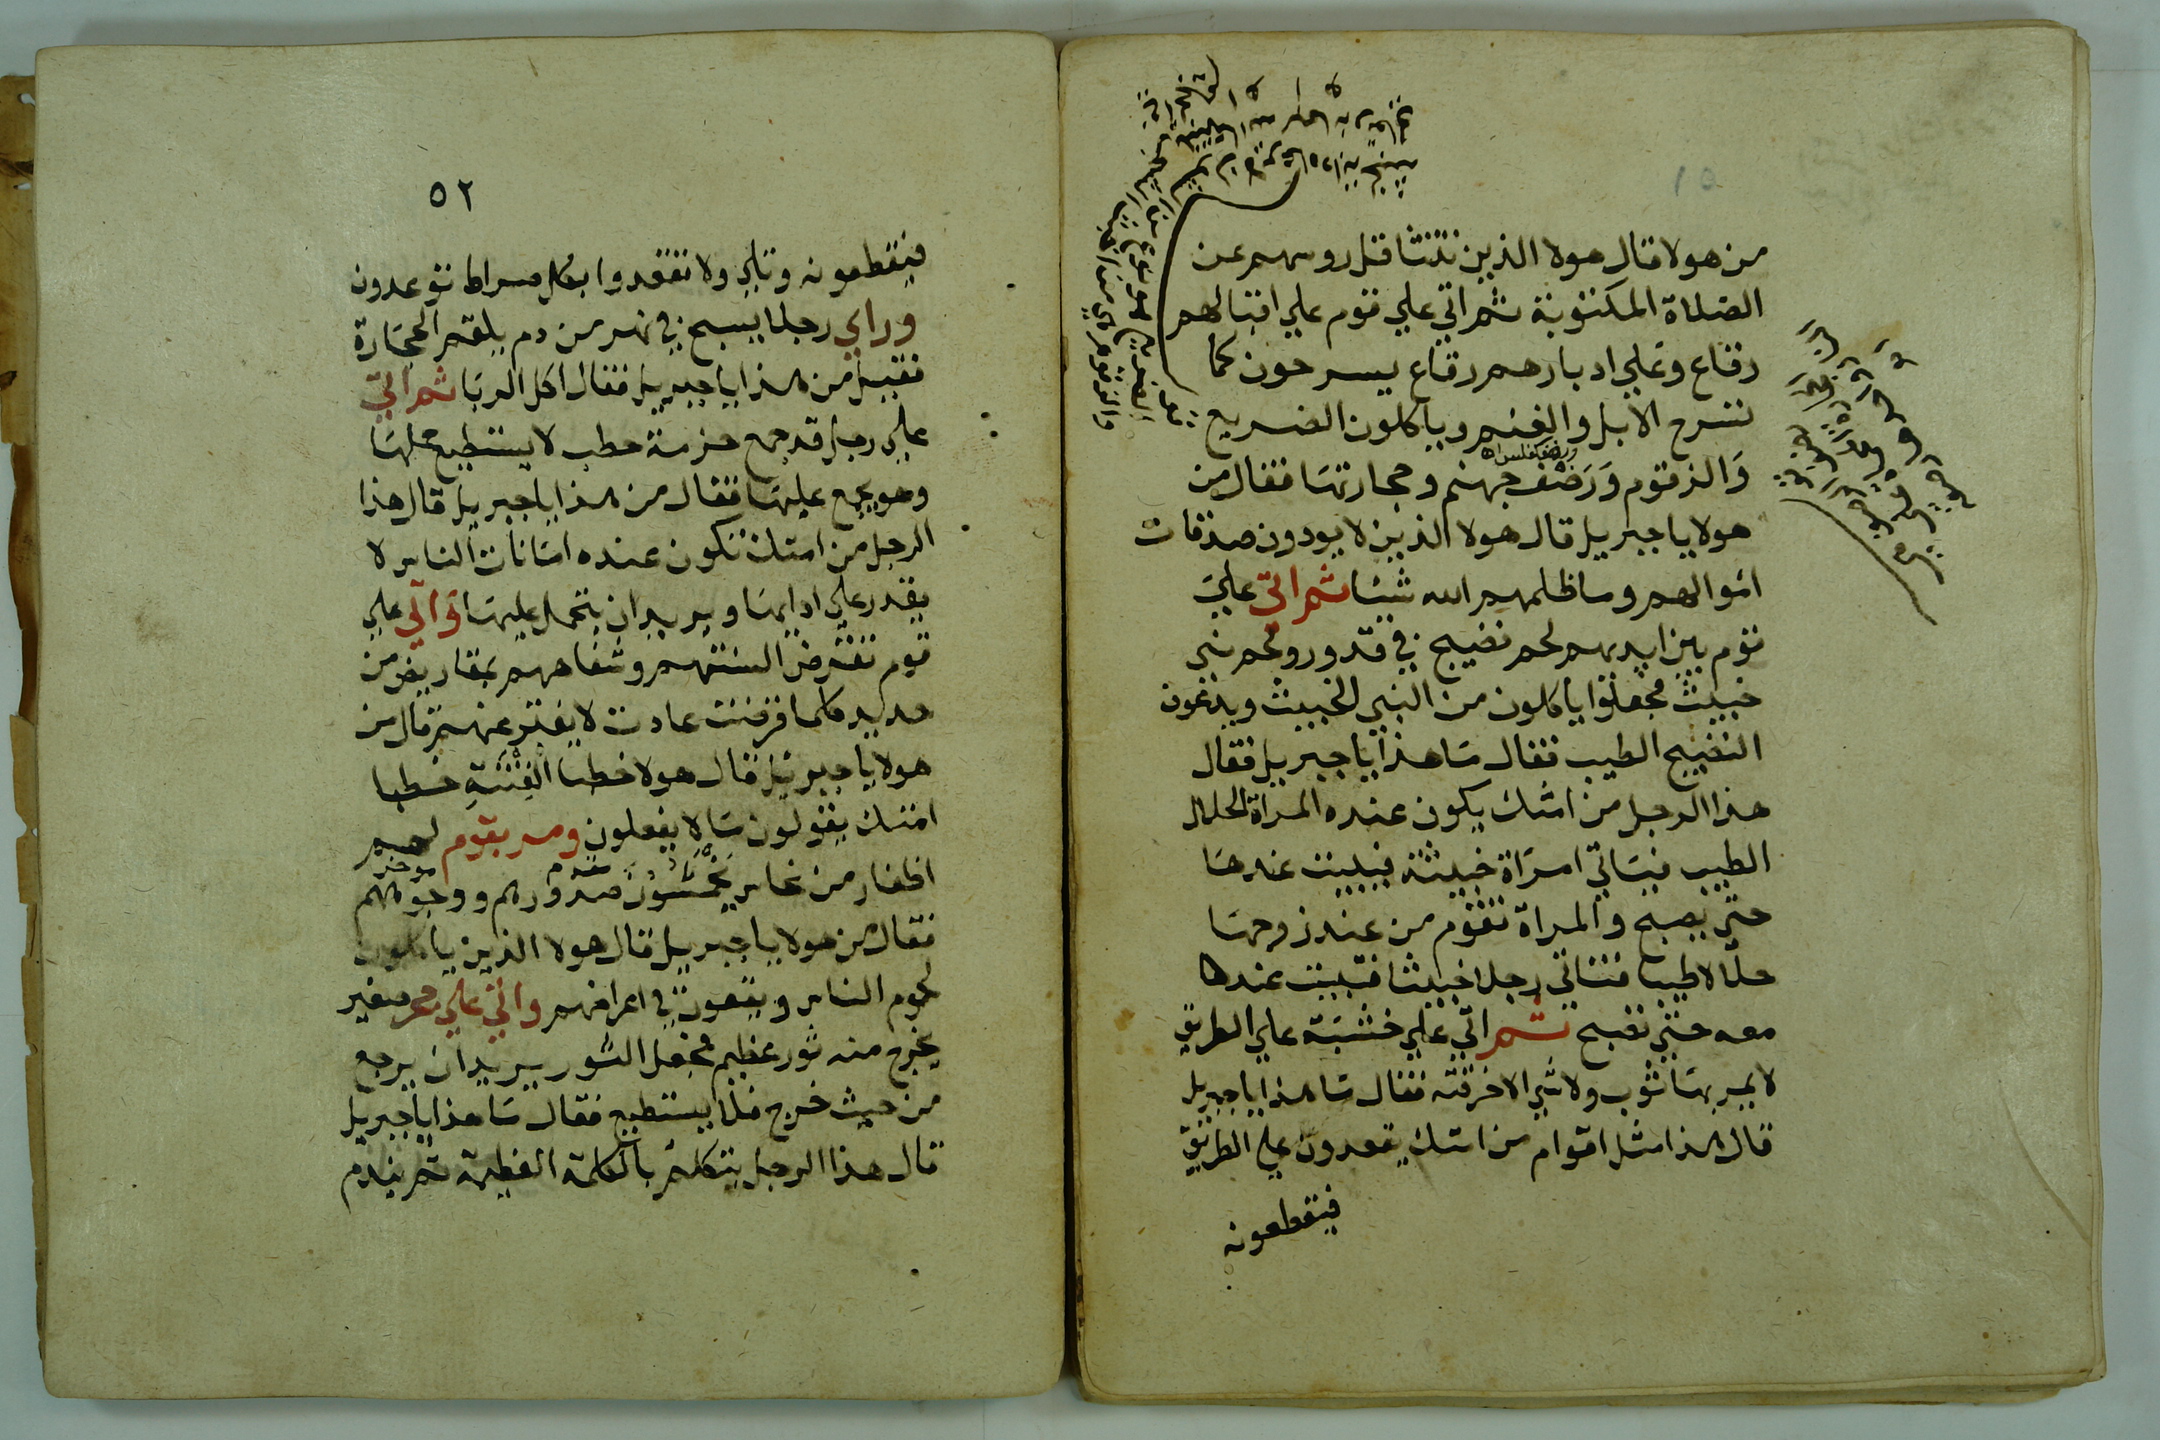 من هولا قال هولا الذين تتثاقل روسهم عن
الصلاة المكتوبة ثم اتي علي قوم علي اقبالهم
رقاع وعلي ادبارهم رقاع يسرحون كما
تسرح الابل والغنم وياكلون الضريع
وَالزقوم وَرَضْف جهنم وحجارتها فقال من
هولا يا جبريل قال هولا الذين لا يودون صدقات
اموالهم وما ظلمهم الله شيئا ثم اتي علي
قوم بين ايديهم لحم نضيج في قدور ولحم ني
خبيث فجعلوا ياكلون من الني الخبيث ويدعون
النضيج الطيب فقال ما هذا يا جبريل فقال
هذا الرجل من امتك يكون عنده المراة الحلال
الطيب فياتي امراة خبيثة فيبيت عندها
حتي يصبح والمراة تقوم من عند زوجها
حلالا طيبا فتاتي رجلا خبيثا فتبيت عنده
معه حتي تصبح ثم اتي علي خشبة علي الطريق
لا يمر بها ثوب ولا شي الا خرقته فقال ما هذا يا جبريل
قال هذا مثل اقوام من امتك يقعدون علي الطريق
فيقطعونه
٥٢
فيقطعونه وتلي ولا تقعدوا بكل صراط توعدون
وراي رجلا يسبح في نهر من دم يلقم الحجارة
فقيل من هذا يا جبريل فقال اكل الربا ثم اتي
علي رجل قد جمع حزمة حطب لا يستطيع حملها
وهو يجمع عليها فقال من هذا يا جبريل قال هذا
الرجل من امتك تكون عنده امانات الناس لا
يقدر علي ادايها ويريد ان يتحمل عليها واتي علي
قوم تقرض السنتهم وشفاههم بمقاريض من
حديد كلما قرضت عادت لا يفتر عنهم قال من
هولا يا جبريل قال هولا خطبا الفِتْنَةِ خطبا
امتك يقولون ما لا يفعلون ومر بقوم لهم
اظفار من نحاس يَخْمِشُونَ صدورهم ووجوههم
فقال من هولا يا جبريل قال هولا الذين ياكلون
لحوم الناس ويقعون في اعراضهم واتي علي جحر صغير
يخرج منه ثور عظيم فجعل الثور يريد ان يرجع
من حيث خرج فلا يستطيع فقال ما هذا يا جبريل
قال هذا الرجل يتكلم بالكلمة العظيمة ثم يندم